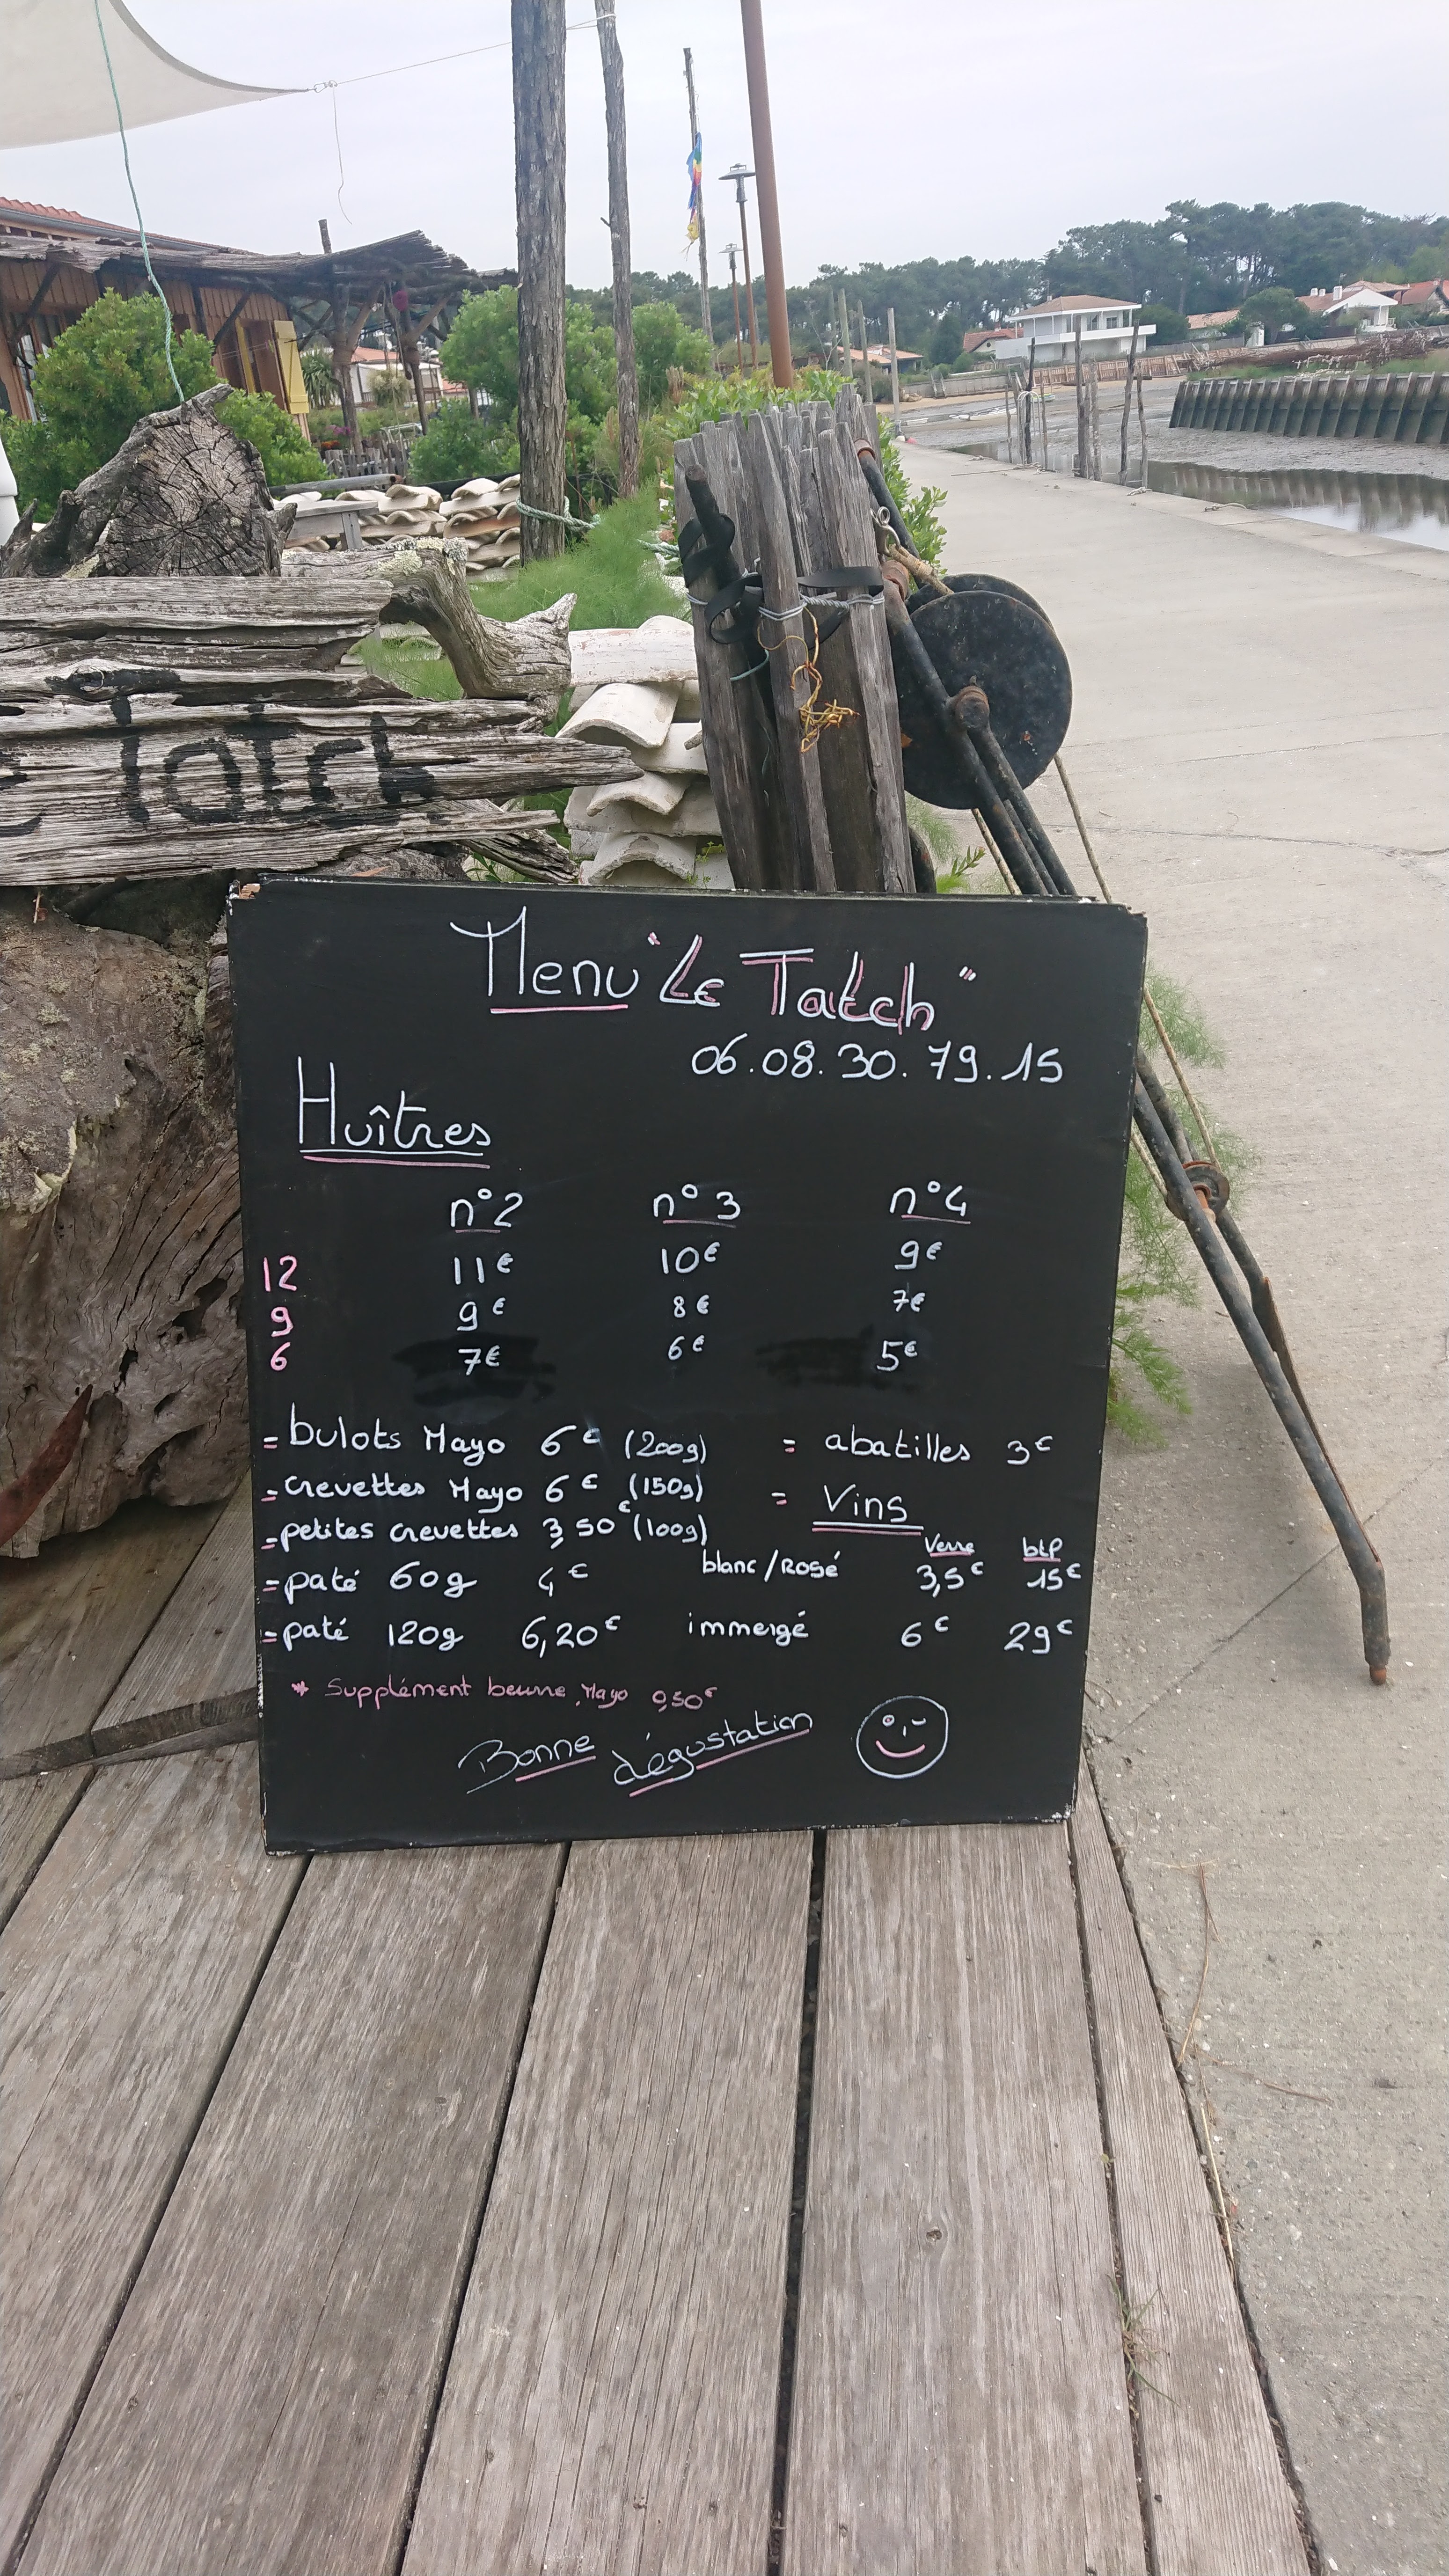 e Tatch
Menu "Le Tatch"
06.08.30.79.15
Huîtres
n°2 n°3 n°4
12 11€ 10€ 9€
9 9€ 8€ 7€
6 7€ 6€ 5€
= bulots Mayo 6€ (200g) = abatilles 3€
= crevettes Mayo 6€ (150g) = Vins
= petites crevettes 3,50€ (100g) Verre btl
= paté 60g 4€ blanc/Rosé 3,5€ 15€
= paté 120g 6,20€ immergé 6€ 29€
* Supplément beurre, Mayo 0,50€
Bonne dégustation